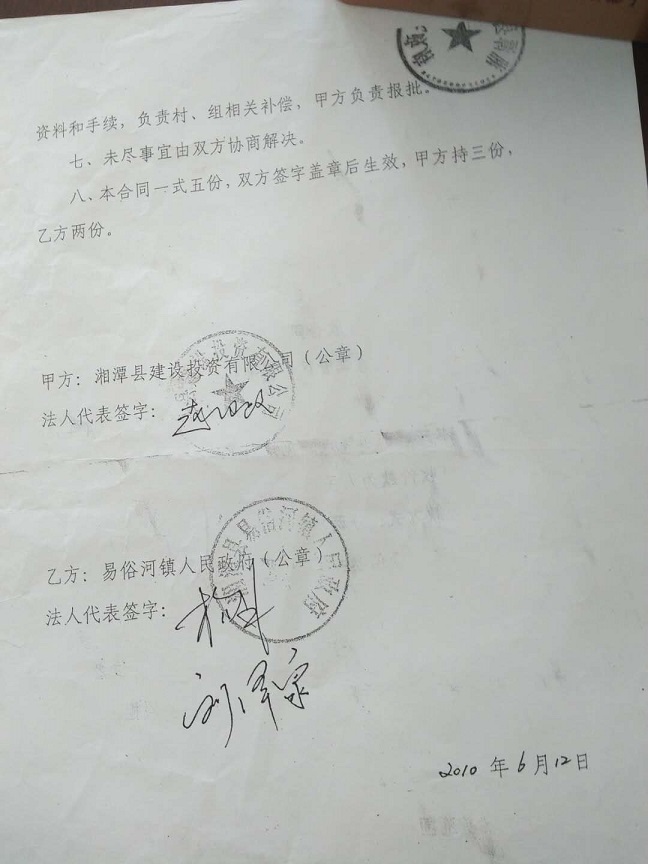 资料和手续，负责村、组相关补偿，甲方负责报批。
七、未尽事宜由双方协商解决。
八、本合同一式五份，双方签字盖章后生效，甲方持三份，
乙方两份。
甲方：湘潭县建设投资有限公司（公章）
法人代表签字：
乙方：易俗河镇人民政府（公章）
湘潭县易俗河镇人民政府
法人代表签字：
2010 年 6 月 12 日